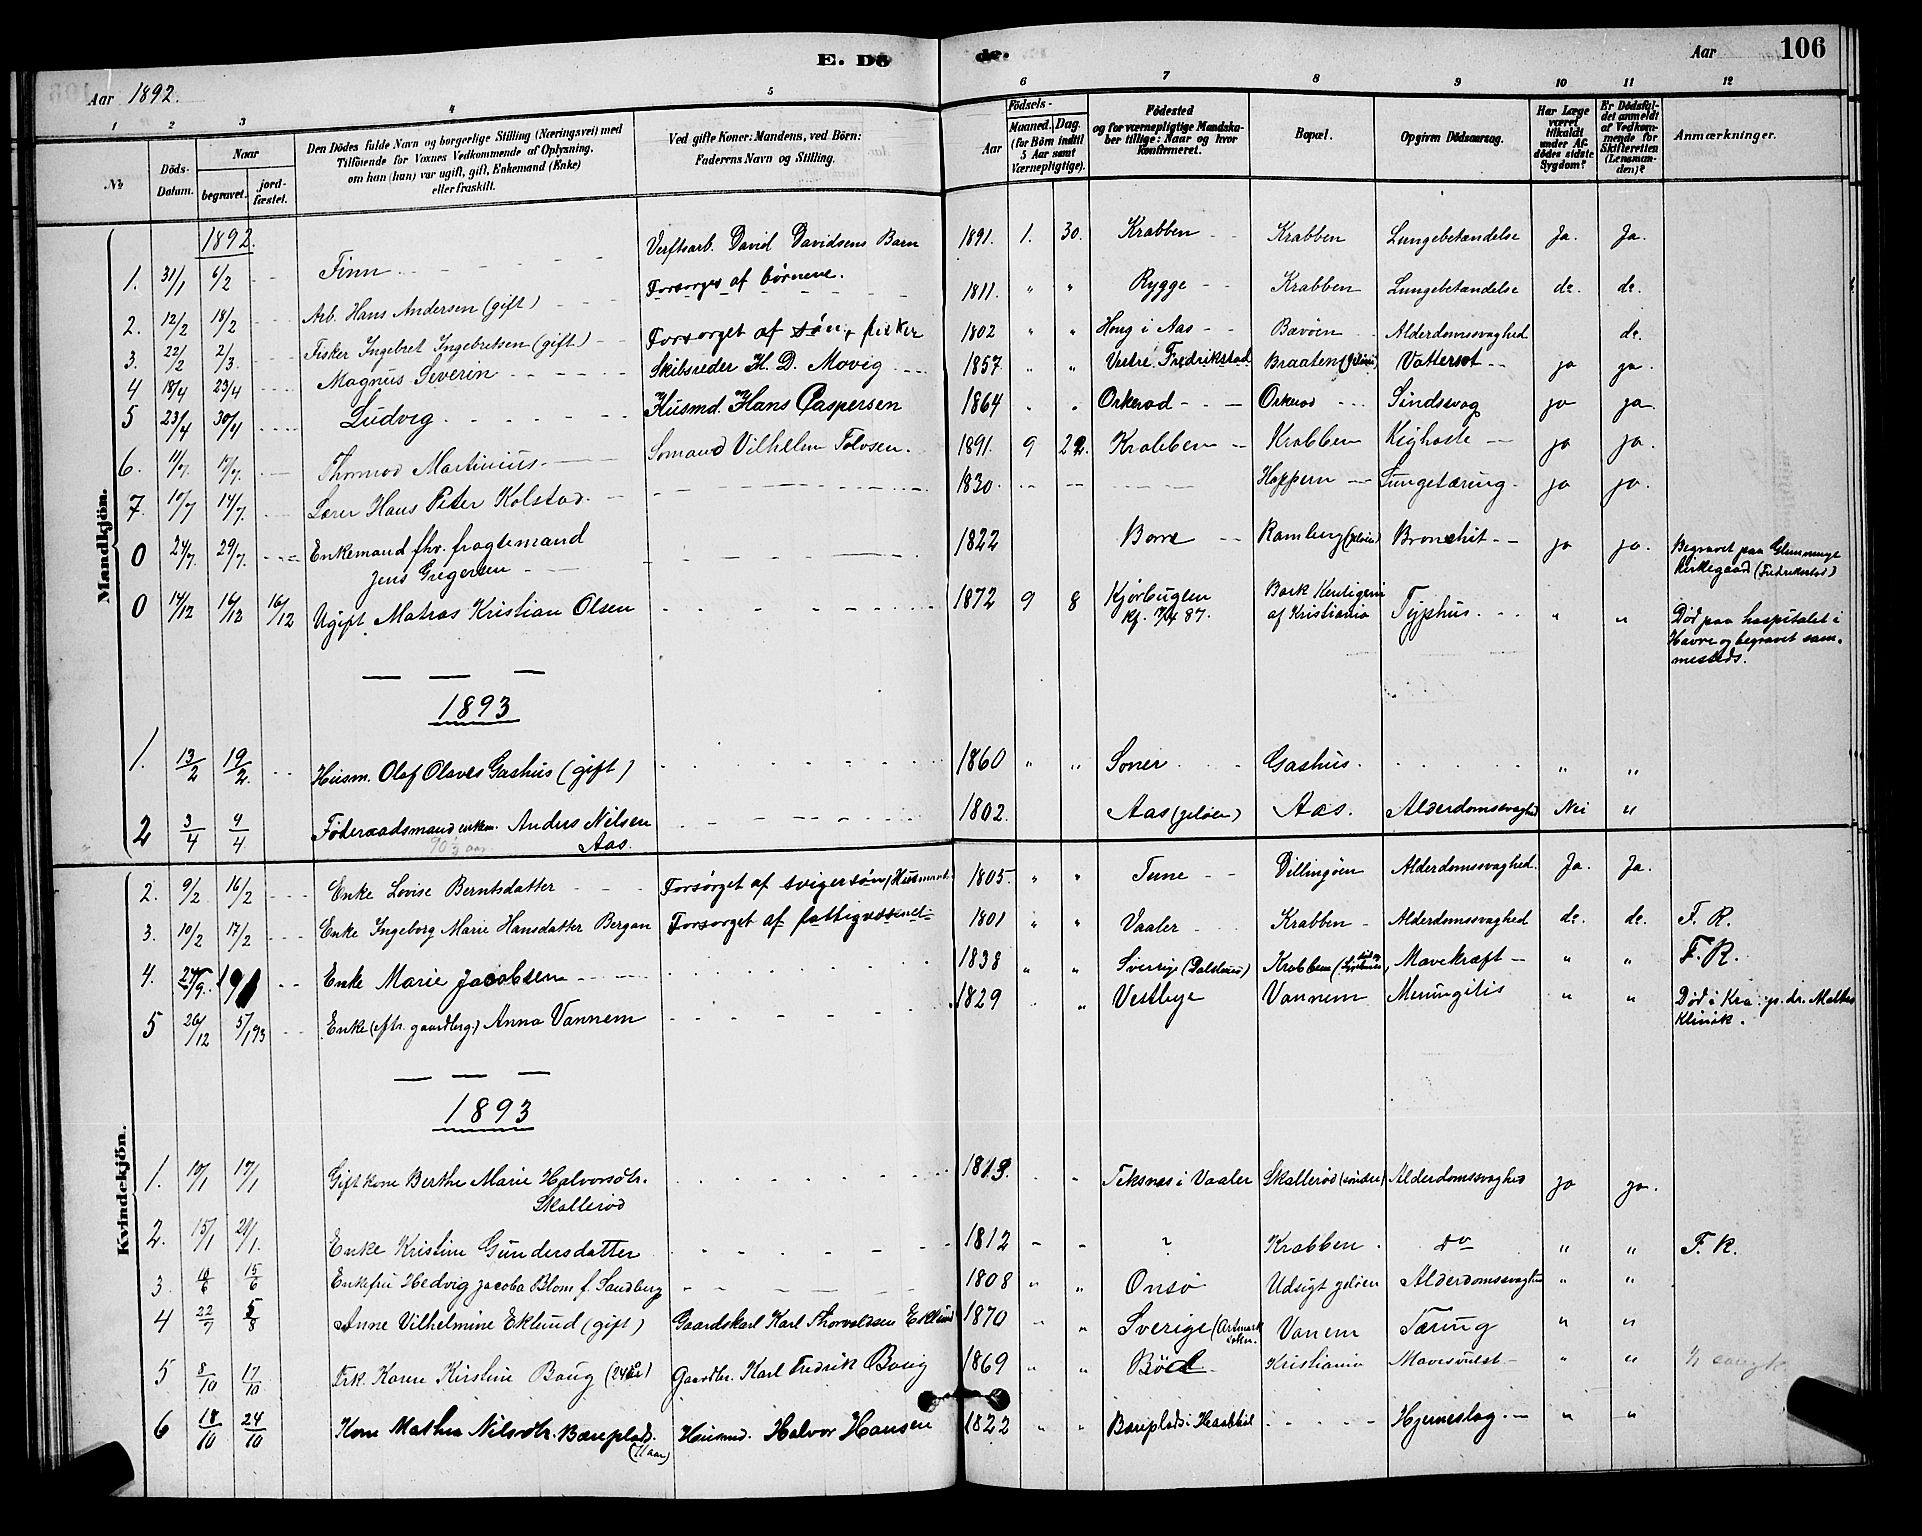 E. Dö de.
Aar 106
Aar 1892.
1 2 3 4 5 6 7 8 9 10 11 12
No
Döds-Datum.
Naar
begravet.
jord-fæstet.
Den Dödes fulde Navn og borgerlige Stilling (Næringsvei) med
Tilföiende for Voxnes Vedkommende af Oplysning,
om han (hun) var ugift, gift, Enkemand (Enke)
eller fraskilt.
Ved gifte Koner: Mandens, ved Börn:
Faderens Navn og Stilling.
Födsels-
Aar
Maaned. Dag.
(for Börn indtil
5 Aar samt
Værnepligtige).
Födested
og for værnepligtige Mandska-
ber tillige: Naar og hvor
Konfirmeret.
Bopæl.
Opgiven Dödsaarsag.
Har Læge
været
tilkaldt
under Af-
dödes sidste
Sygdom?
Er Dödsfal-
det anmeldt
af Vedkom-
mende for
Skifteretten
(Lensman-
den)?
Anmærkninger.
Mandkjön.
1892.
1. 31/1 6/2 Finn Verftsarb. David Davidsens Barn 1891. 1. 30. Krabben Krabben Lungebetændelse Ja. Ja.
2. 12/2 18/2 Arb. Hans Andersen (gift) Forsørges af børnene. 1811. " " Rygge Krabben Lungebetændelse do. do.
3. 22/2 2/3 Fisker Ingebret Ingebretsen (gift) Forsørget af søn, fisker 1802 " " Houg i Aas Bævøen Alderdomssvaghed do.
4 18/4 23/4 Magnus Severin Skibsreder H. D. Movig 1857 " " Vestre Fredrikstad Braaten (Jeløen) Vattersot ja ja.
5 23/4 30/4 Ludvig Husmd. Hans Caspersen 1864 " " Orkerød Orkerød Sindssvag ja ja
6. 11/7. 17/7. Thormod Martinius Sømand Vilhelm Tolvsen. 1891. 9 22. Krabben Krabben Kighoste ja ja.
7. 10/7 14/7. Lærer Hans Peter Kolstad 1830. Hoppern Lungetæring ja ja.
0 24/7. 29/7. Enkemand fhv. fragtemand
Jens Gregersen 1822 Borre Ramberg (Jeløen) Bronchit ja ja. Begravet paa Glemminge
Kirkegaard (Fredrikstad)
0 14/12 16/12 16/12 Ugift Matros Kristian Olsen 1872 9 8 Kjørbugten
kf. 7/4 87. Bark Kentigern
af Kristiania Typhus. " " Død paa hospitalet i
Havre og begravet sam-
mesteds.
1893
1. 13/2 19/2 Husm. Olaf Olaves Gashus (gift) 1860 " " Soner Gashus. " "
2 3/4 9/4 Føderaadsmand enkem. Anders Nilsen
90 3/4 aar. Aas. 1802. Aas (Jeløen) Aas. Alderdomssvaghed Nei "
Kvindekjön.
2. 9/2 16/2 Enke Lovise Berntsdatter Forsørget af svigersøn, Husmand 1805. " " Tune Dillingøen Alderdomssvaghed Ja. Ja.
3. 10/2 17/2 Enke Ingeborg Marie Hansdatter Bergan Forsørget af fattigvæsenet 1801 " " Vaaler Krabben Alderdomssvaghed do. do. F. R.
4. 24/9. Enke Marie Jacobsen 1838 " " Sverrige (Dalsland) Krabben Mavekræft " " F. R.
5 26/12 5/1 93 Enke (eftr. gaardbrg.) Anna Vannem 1829 " Vestbye Vannem Meningitis " " Død i Kra. pr. dr. Malthes
Klinik.
1893
1. 10/1 17/1 Gift kone Berthe Marie Halvorsdtr.
Skallerød 1813. " " Teksnæs i Vaaler Skallerød (søndre) Alderdomssvaghed ja ja.
2. 15/1 21/1. Enke Kristine Gundersdatter 1812 ? Krabben. do " " F. R.
3. 10/6 15/6 Enkefru Hedvig Jacoba Blom f. Sandberg 1808 " " Onsø Udsigt Jeløen Alderdomssvaghed " "
4 22/7 5/8 Anne Vilhelmine Eklund (gift) Gaardskarl Karl Thorvaldsen Eklund 1870 " " Sverige (Artmark
sokn. Vanem Tæring " "
5 8/10 17/10 Frk. Karen Kirstine Baug (24 år) Gaardbr. Karl Fredrik Baug 1869 " " Bød Kristiania Mavesvulst " "
6 18/10 24/10 Kone Mathea Nilsdtr. Bæreplads.
(71 aar) Husmd. Halvor Hansen 1822 " " Bæreplads i Hesthie Hjerneslag. " "